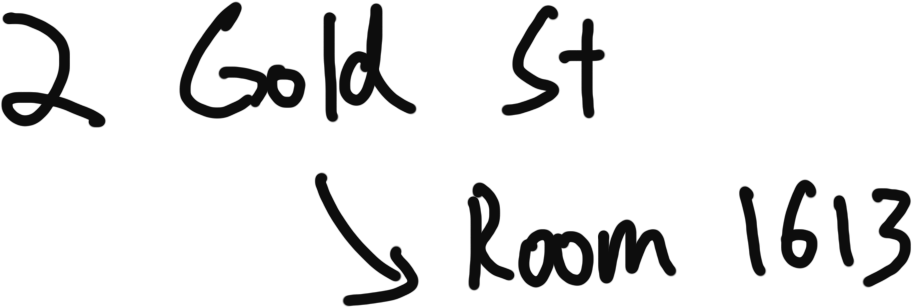 2 Gold St
→ Room 1613